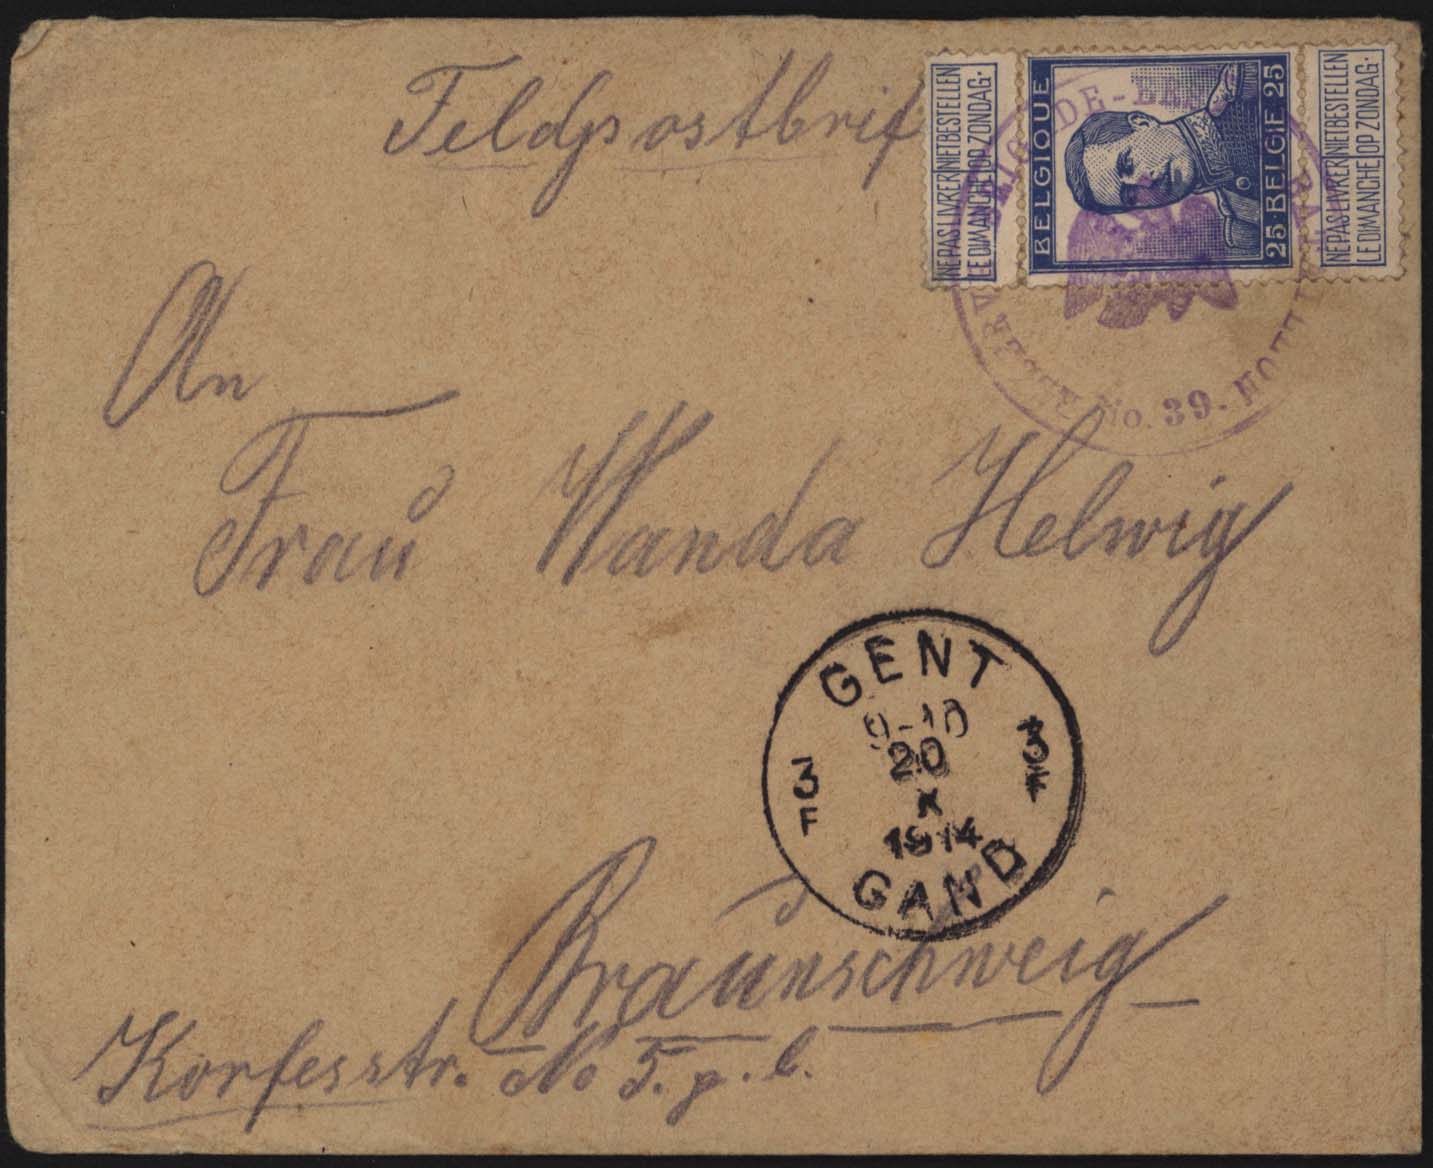 Feldpostbrif
NE PAS LIVRER NIET BESTELLEN
LE DIMANCHE OP ZONDAG.
BELGIQUE
25 BELGIE 25
NE PAS LIVRER NIET BESTELLEN
LE DIMANCHE OP ZONDAG.
No. 39.
An
Frau Wanda Helwig
GENT
9-10
20
X
1914
3
F
3
F
GAND
Braunschweig
Korfesstr. No 5. p. l.